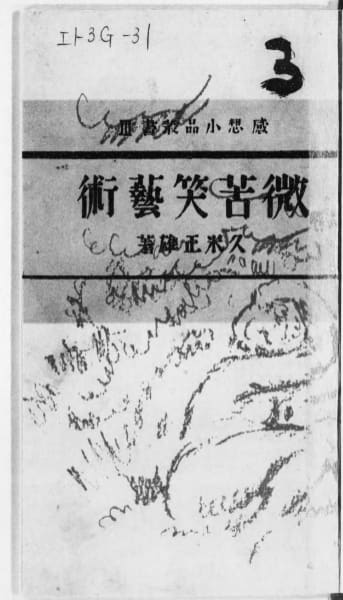 エト3G-31
3
感想小品叢書Ⅲ
微苦笑藝術
久米正雄著